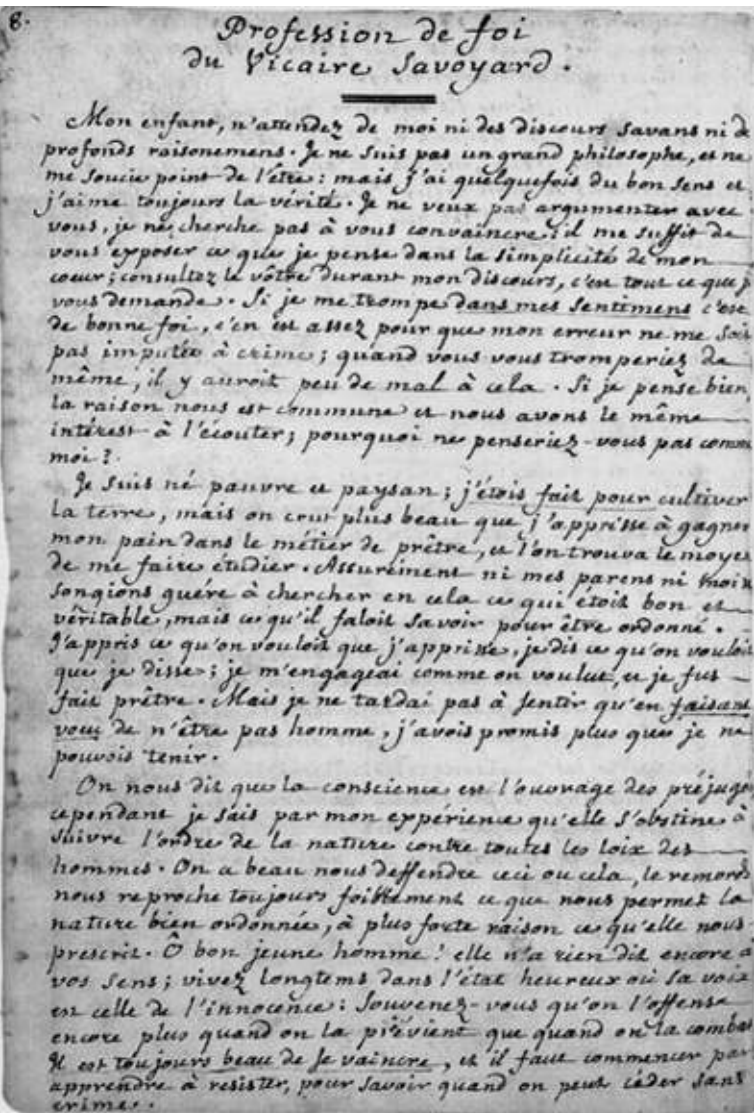 8.
Profession de foi
du Vicaire Savoyard.
Mon enfant, n'attendez de moi ni des discours savans ni de
profonds raisonemens. Je ne suis pas un grand philosophe, et ne
me soucie point de l'être: mais j'ai quelquefois du bon sens et
j'aime toujours la vérité. Je ne veux pas argumenter avec
vous, je ne cherche pas à vous convaincre; il me suffit de
vous exposer ce que je pense dans la simplicité de mon
coeur; consultez le vôtre durant mon discours, c'est tout ce que j
vous demande. Si je me trompe dans mes sentimens c'est
de bonne foi, c'en est assez pour que mon erreur ne me soit
pas imputée à crime; quand vous vous tromperiez de
même, il y auroit peu de mal à cela. Si je pense bien,
la raison nous est commune et nous avons le même
intérest à l'écouter; pourquoi ne penseriez-vous pas comme
moi?
Je suis né pauvre et paysan; j'étois fait pour cultiver
la terre, mais on crut plus beau que j'apprisse à gagner
mon pain dans le métier de prêtre, et l'on trouva le moyen
de me faire étudier. Assurément ni mes parens ni moi ne
songions guére à chercher en cela ce qui étoit bon et
véritable, mais ce qu'il faloit savoir pour être ordonné.
J'appris ce qu'on vouloit que j'apprisse, je dis ce qu'on vouloit
que je disse; je m'engageai comme on voulut, et je fus
fait prêtre. Mais je ne tardai pas à sentir qu'en faisant
vœu de n'être pas homme, j'avois promis plus que je ne
pouvois tenir.
On nous dit que la conscience est l'ouvrage des préjugés
cependant je sais par mon expérience qu'elle s'obstine à
suivre l'ordre de la nature contre toutes les loix des
hommes. On a beau nous deffendre ceci ou cela, le remords
nous reproche toujours foiblement ce que nous permet la
nature bien ordonnée, à plus forte raison ce qu'elle nous
prescrit. Ô bon jeune homme! elle n'a rien dit encore à
vos sens; vivez longtems dans l'état heureux où sa voix
est celle de l'innocence: Souvenez-vous qu'on l'offense
encore plus quand on la prévient que quand on la combat
Il est toujours beau de se vaincre, et il faut commencer par
apprendre à resister, pour savoir quand on peut céder sans
crime.